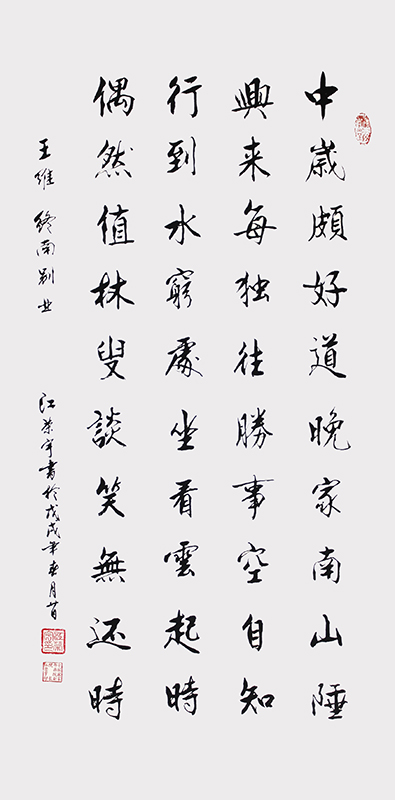 中歲頗好道晚家南山陲
興来每独往勝事空自知
行到水窮處坐看雲起時
偶然值林叟談笑無还時
王維 終南别业 江荣宇書於戊戌年月